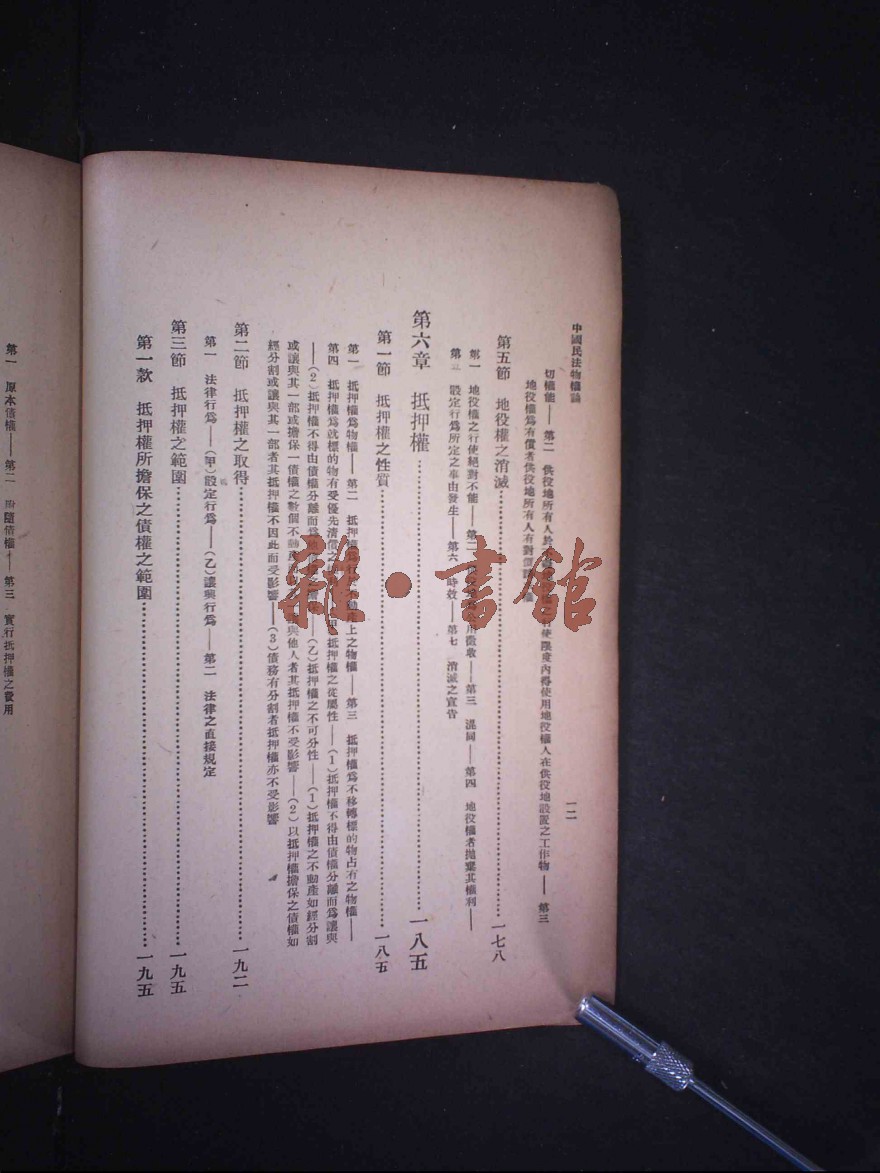 中國民法物權論
一二
切權能——第二 供役地所有人於使限度內得使用地役權人在供役地設置之工作物——第三
地役權爲有償者供役地所有人有對價
第五節 地役權之消滅 一七八
第一 地役權之行使絕對不能——第二 徵收——第三 混同——第四 地役權者拋棄其權利——
第五 設定行爲所定之事由發生——第六 時效——第七 消滅之宣告
第六章 抵押權 一八五
第一節 抵押權之性質 一八五
第一 抵押權爲物權——第二 抵押權上之物權——第三 抵押權爲不移轉標的物占有之物權——
第四 抵押權爲就標的物有受優先清償之 抵押權之從屬性——(1)抵押權不得由債權分離而爲讓與
——(2)抵押權不得由債權分離而爲 ——(乙)抵押權之不可分性——(1)抵押權之不動產如經分割
或讓與其一部或擔保一債權之數個不動產 與他人者其抵押權不受影響——(2)以抵押權擔保之債權如
經分割或讓與其一部者其抵押權不因此而受影響——(3)債務有分割者抵押權亦不受影響
第二節 抵押權之取得 一九二
第一 法律行爲——(甲)設定行爲——(乙)讓與行爲——第二 法律之直接規定
第三節 抵押權之範圍 一九五
第一款 抵押權所擔保之債權之範圍 一九五
第一 原本債權——第二 附隨債權——第三 實行抵押權之費用
雜·書館